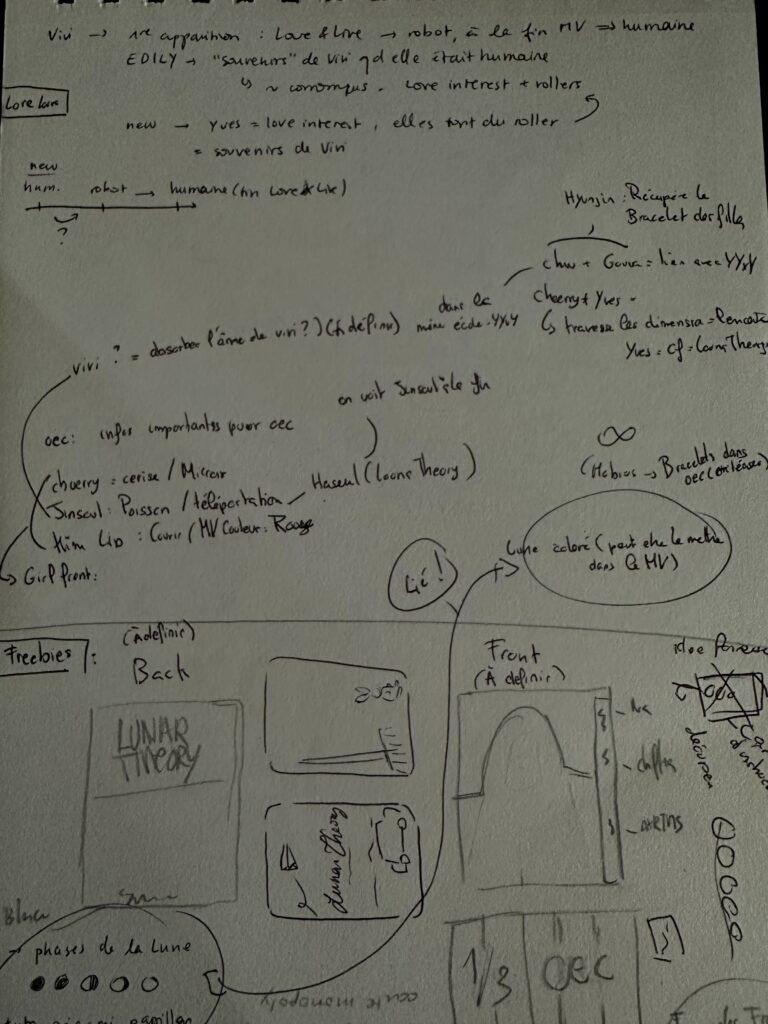 Vivi → 1re apparition : Love & Live → robot, à la fin MV => humaine
EDILY → "souvenirs" de Vivi qd elle était humaine
↳ ~ Love interest + rollers
Lore
new → Yves = love interest, elles font du roller
= souvenirs de Vivi
new
hum. robot → humaine (fin Love & Live)
?
Hyunjin : Récupère le
Bracelet des filles
chuu + Gowon = lien avec YYxY
dans le
même YYxY
Choerry & Yves =
↳ traverse les dimensions = rencontre
Yves = cf = Loona Theory
Vivi ? = l'âme de Vivi ? ) (à définir)
on voit Jinsoul à la fin
oec : infos importantes pour oec
choerry = cerise / Miroir
Jinsoul : Poisson / téléportation
Haseul (Loona Theory)
Kim Lip : Courir / MV Couleur : Rouge
↳ Girl front :
∞
(Mobius → Bracelets dans
oec
Lié !
Lune coloré (peut etre le mettre
dans le MV)
Freebies :
(À définir)
Back
LUNAR
THEORY
Lunar Theory
Front
(À définir)
idee
decouper
→ phases de la Lune
carte monopoly
1/3
OEC